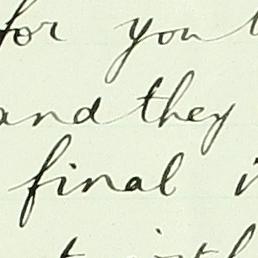 for you
and they
final